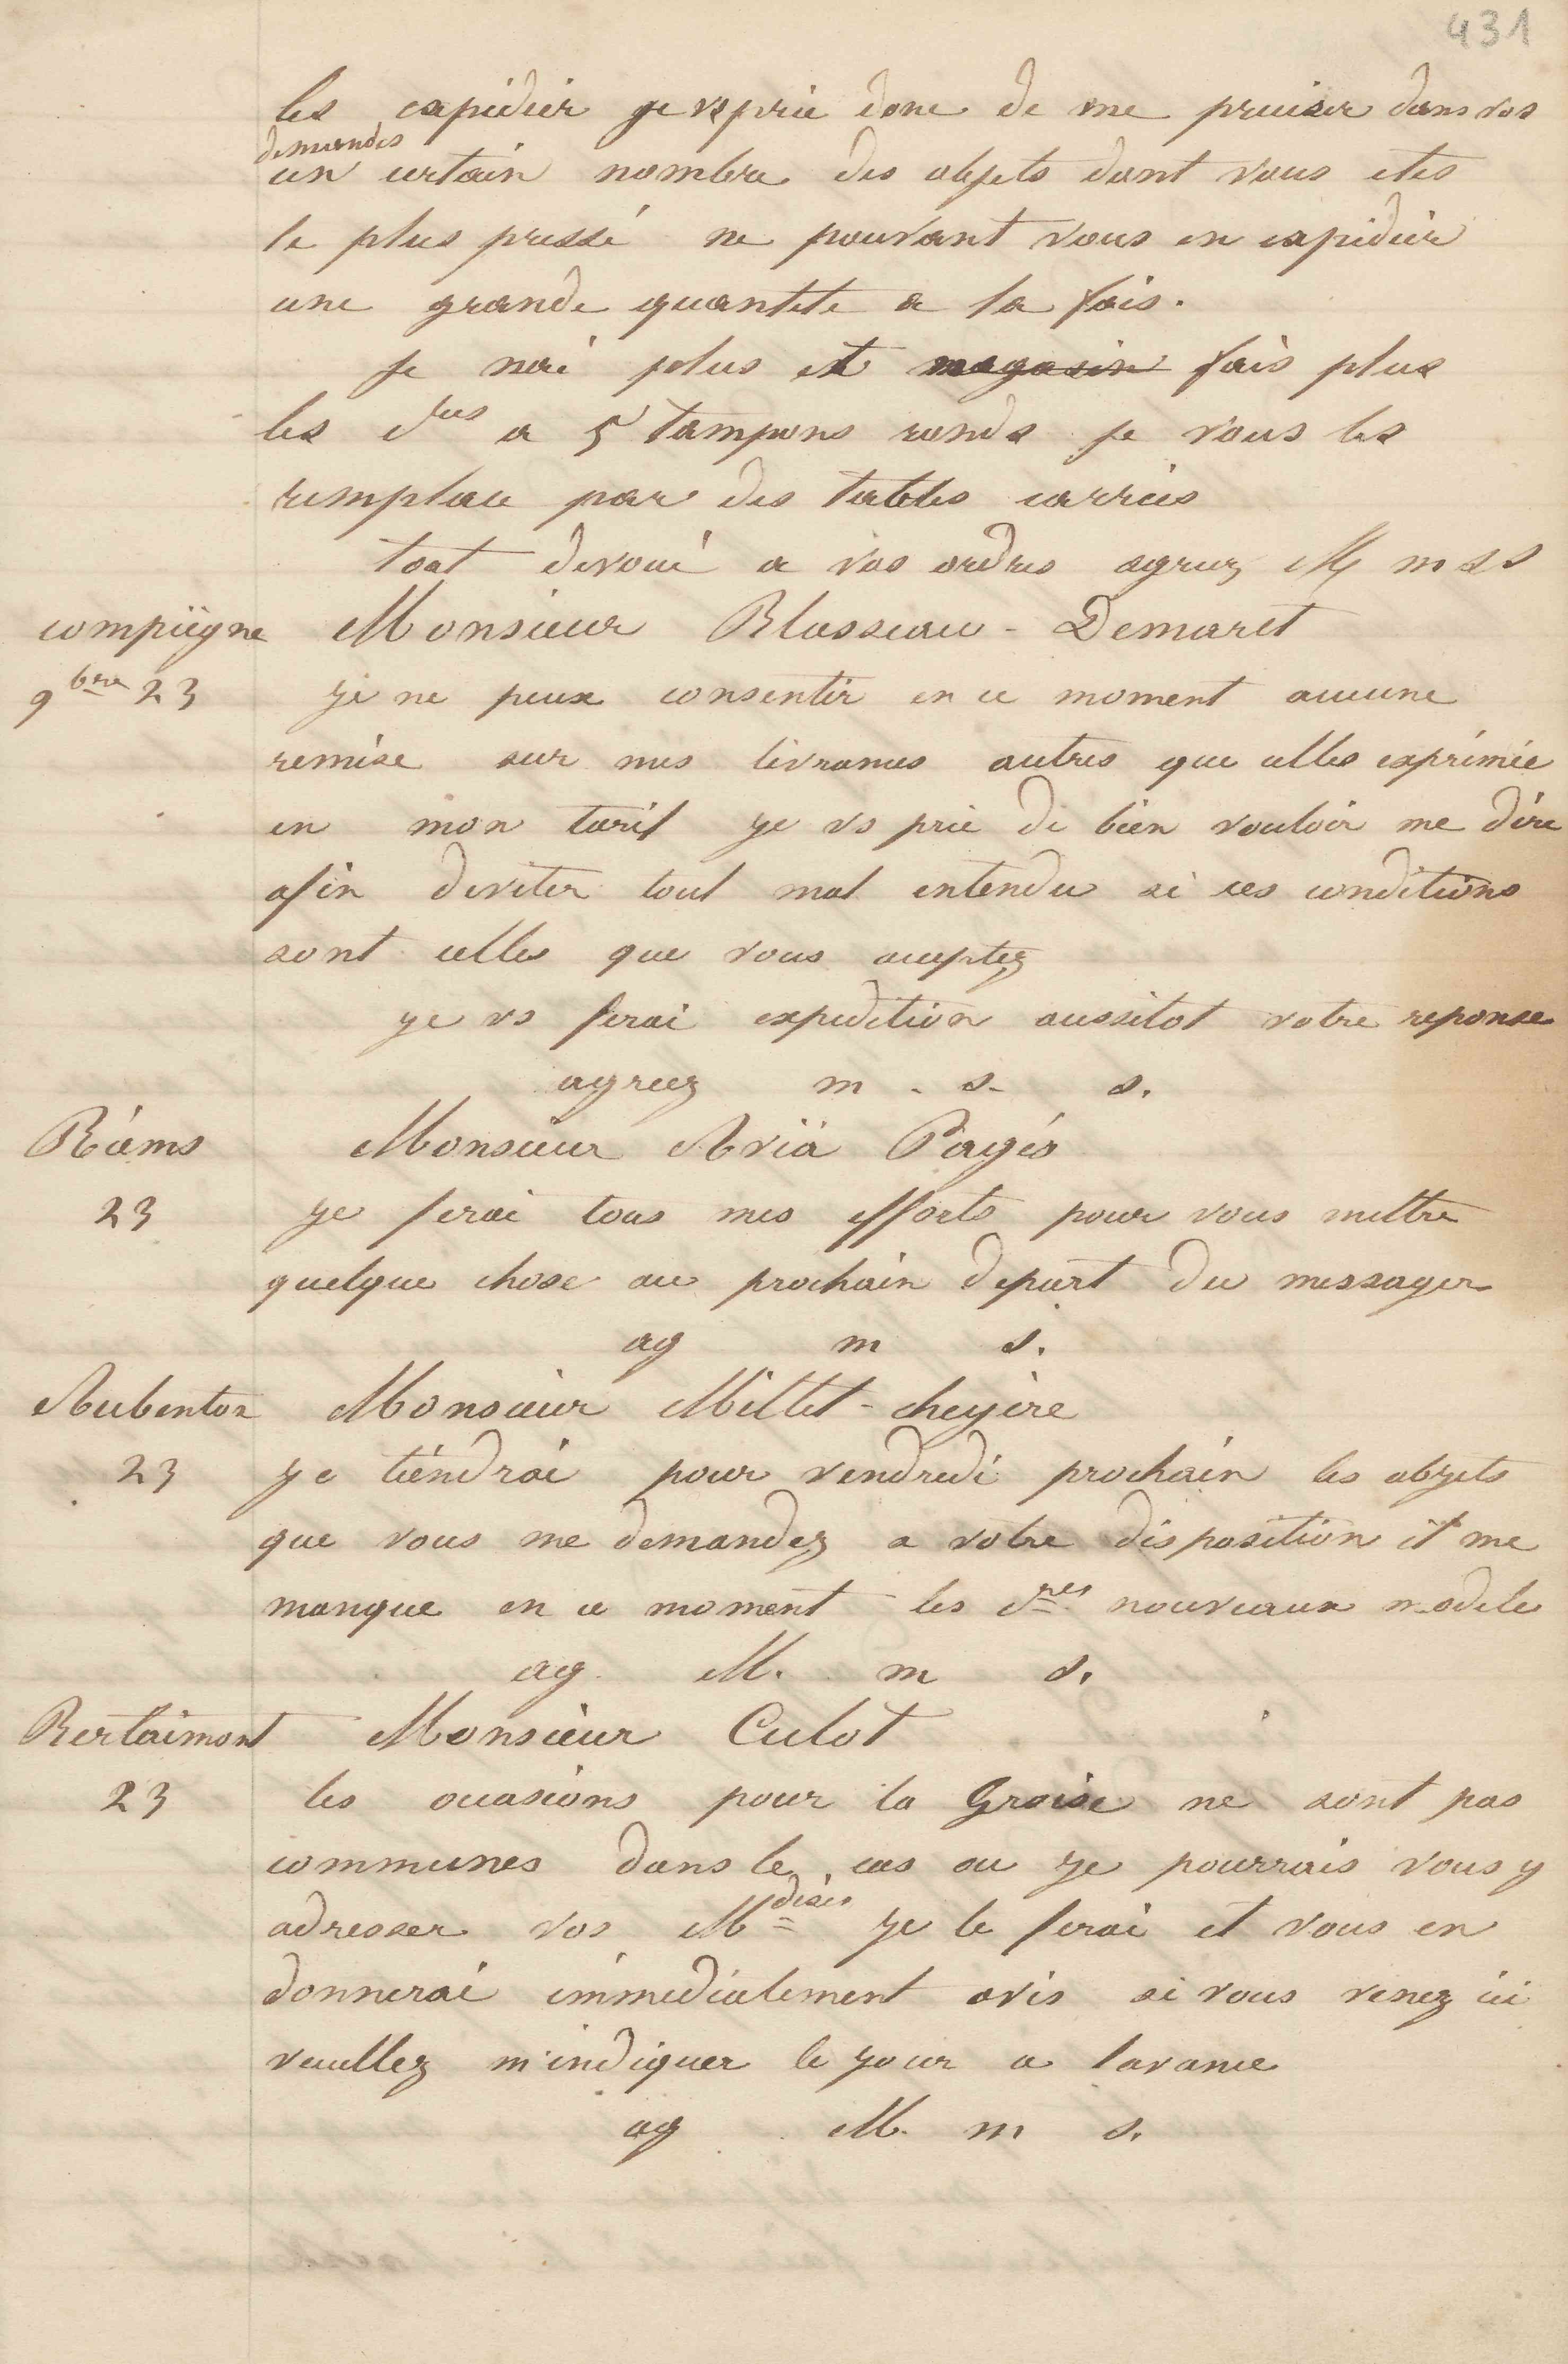 431
les expedier je vs prie donc de me preciser dans vos
demandes
un certain nombre des objets dont vous etes
le plus pressé ne pouvant vous en expedier
une grande quantete a la fois.
je nai plus et magasin fais plus
les à 5 tampons ronds je vous les
remplace par des tables carrées
tout devoué a vos ordres agreez M m s s
compiègne Monsieur Blasseau - Demaret
9bre 23 je ne peux consentir en ce moment aucune
remise sur mes livrances autres que celles exprimée
en mon tarif je vs prie de bien vouloir me dire
afin deviter tout mal entendu si ces conditions
sont celles que vous acceptez
je vs ferai expedition aussitot votre reponse
agreez m. s. s.
Reims Monsieur Pagés
23 je ferai tous mes efforts pour vous mettre
quelque chose au prochain depart du messager
ag m s.
Aubenton Monsieur Millet - cheyère
23 je tiendrai pour vendredi prochain les objets
que vous me demandez a votre disposition il me
manque en ce moment les nouveaux modele
ag. M. m s.
Berlaimont Monsieur Culot
23 les occasions pour la Groise ne sont pas
communes dans le cas ou je pourrais vous y
adresser vos Mdises je le ferai et vous en
donnerai immediatement avis si vous venez ici
veuillez m'indiquer le jour a lavance
ag M. m s.